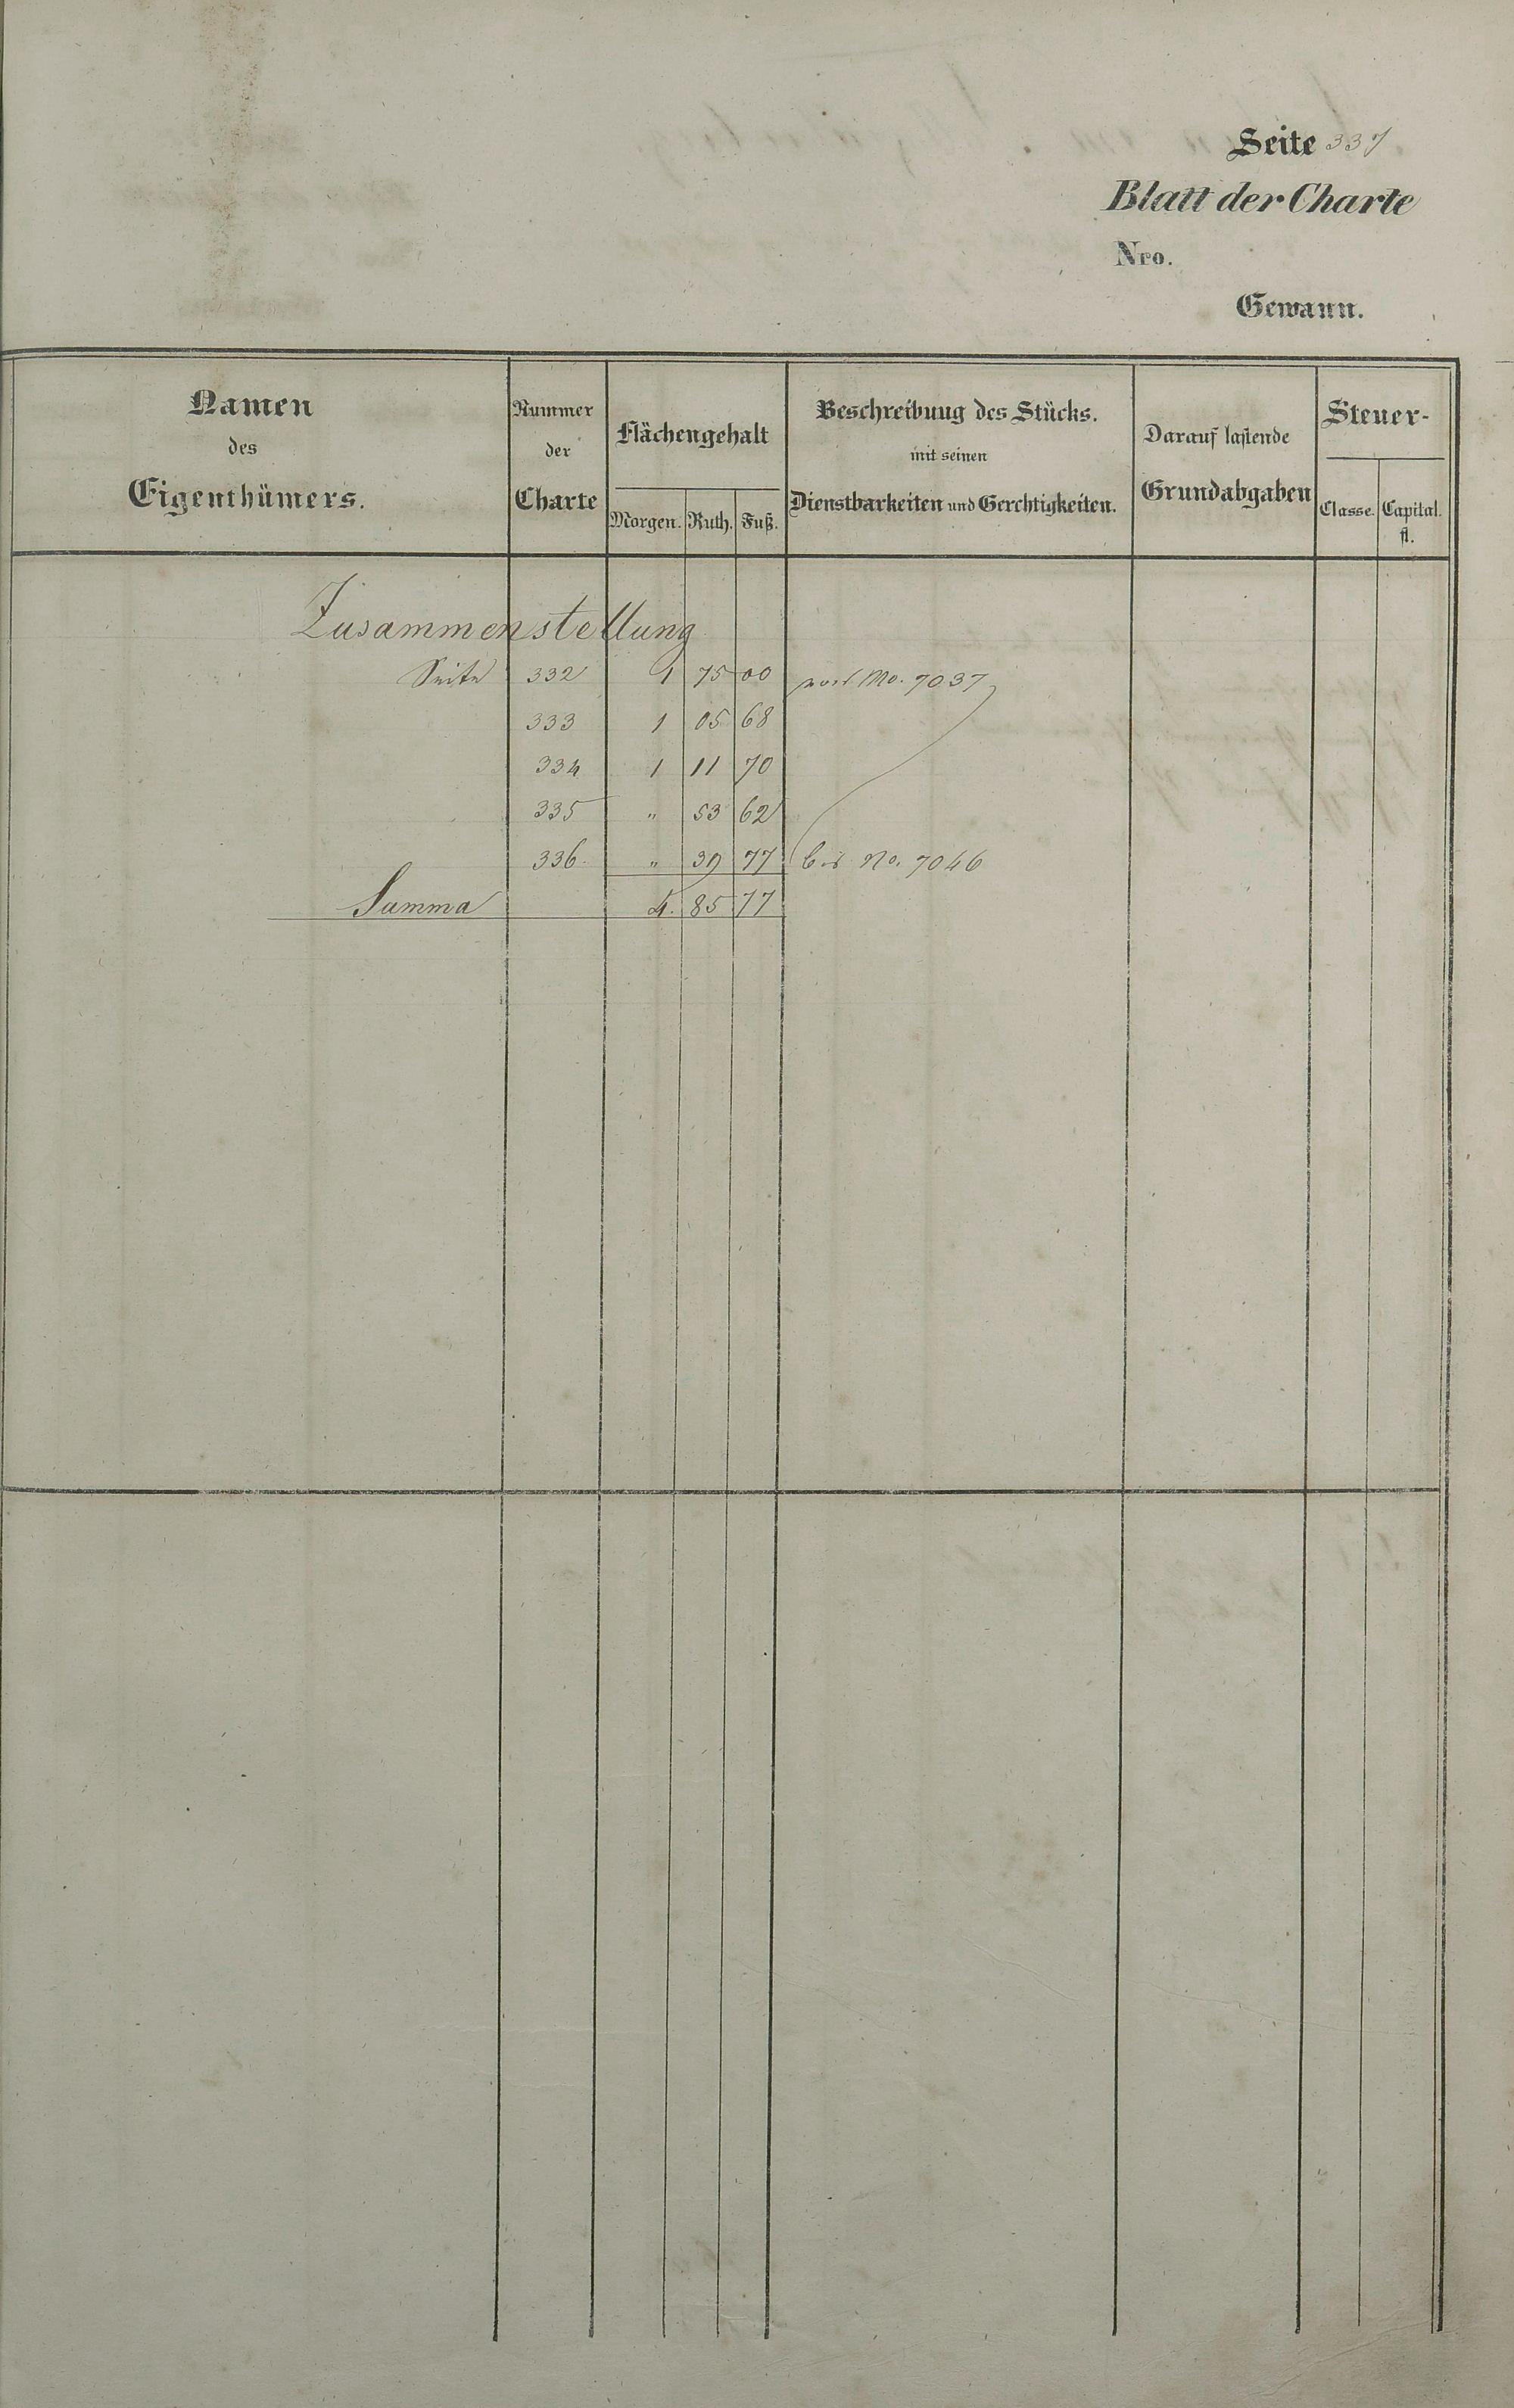 Seite 337
Blatt der Charte
Nro.
Gewann.
Namen des Eigenthümers.
Nummer der Charte
Flächengehalt
Morgen. Ruth. Fuß.
Beschreibung des Stücks. mit seinen Dienstbarkeiten und Gerechtigkeiten.
Darauf lastende Grundabgaben
Steuer-
Classe. Capital. fl.
Zusammenstellung
Seite 332 1 75 00 von No. 7037
333 1 05 68
334 1 11 70
335 " 53 62
336 " 39 77 bis No. 7046
Summa 4. 85 77